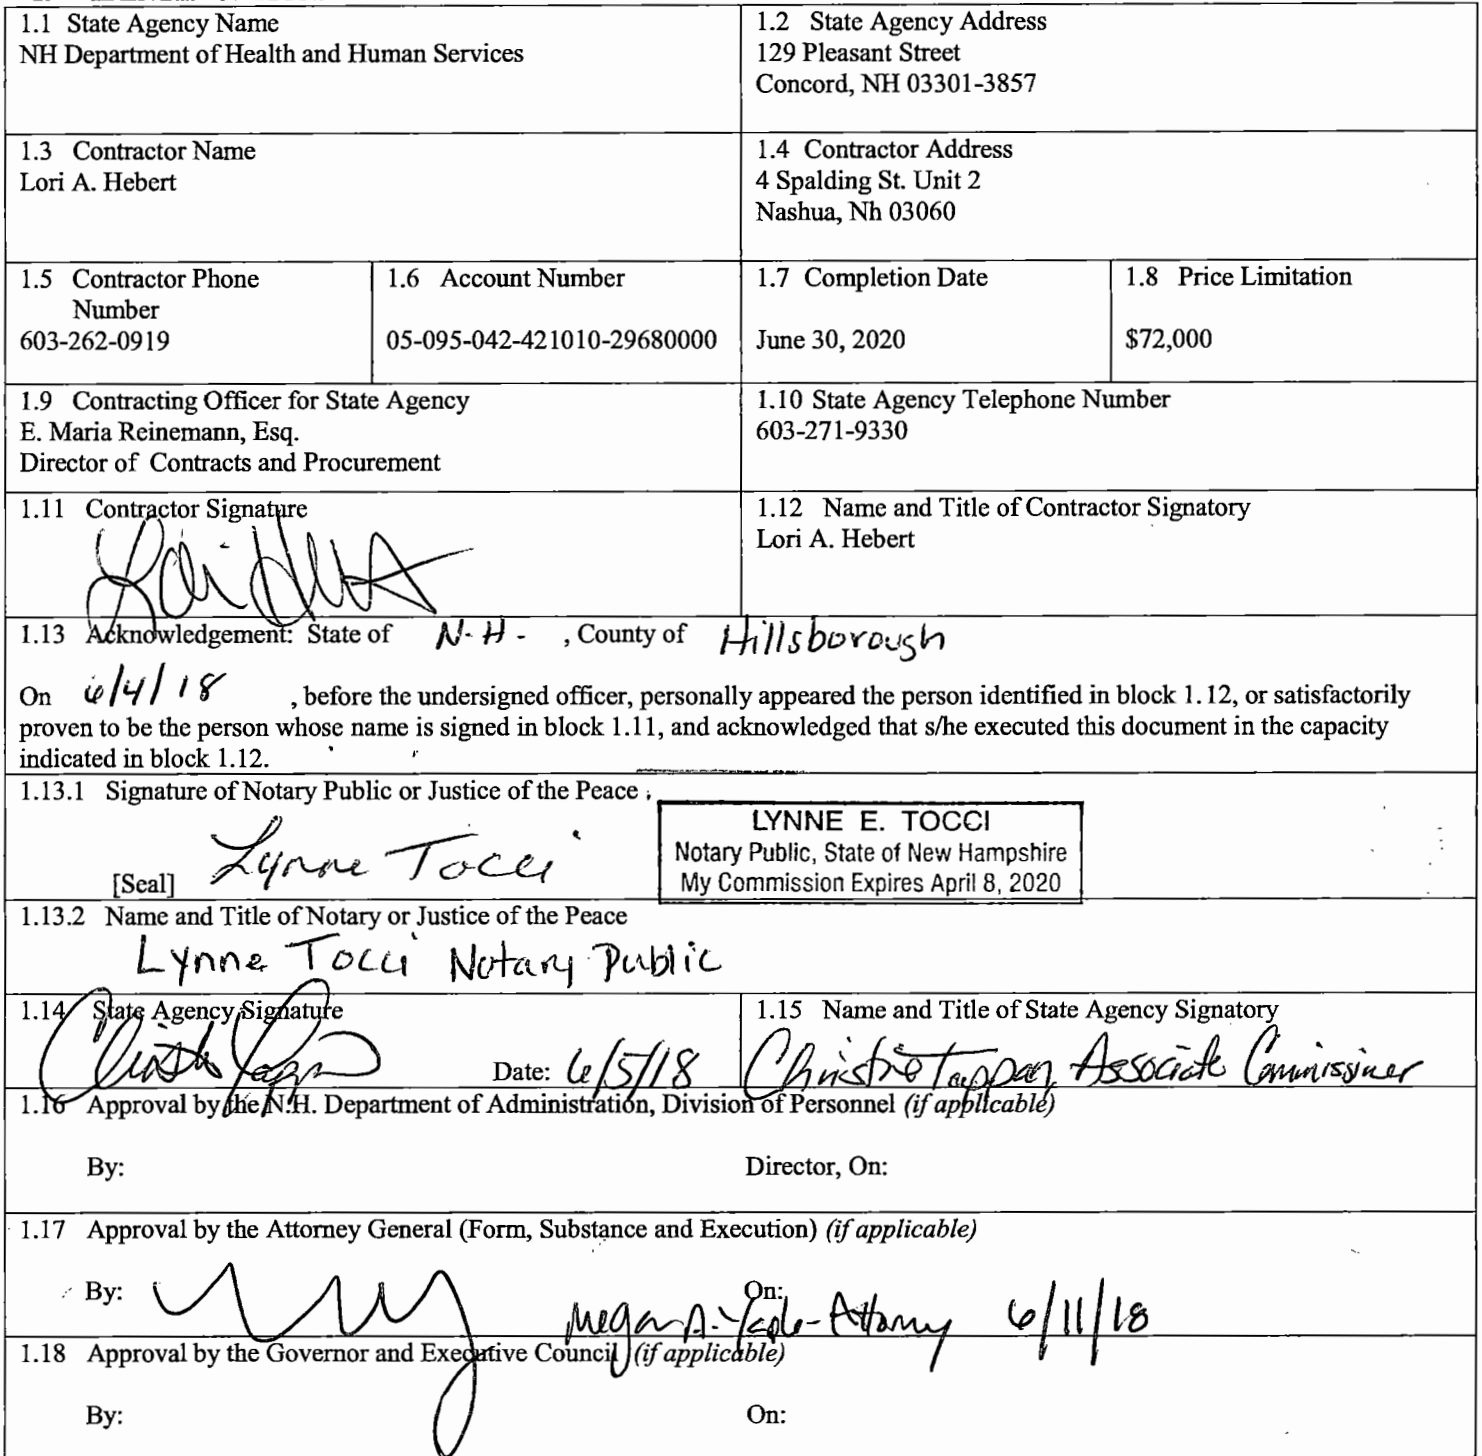 1.1 State Agency Name
NH Department of Health and Human Services
1.2 State Agency Address
129 Pleasant Street
Concord, NH 03301-3857
1.3 Contractor Name
Lori A. Hebert
1.4 Contractor Address
4 Spalding St. Unit 2
Nashua, Nh 03060
1.5 Contractor Phone
Number
603-262-0919
1.6 Account Number
05-095-042-421010-29680000
1.7 Completion Date
June 30, 2020
1.8 Price Limitation
$72,000
1.9 Contracting Officer for State Agency
E. Maria Reinemann, Esq.
Director of Contracts and Procurement
1.10 State Agency Telephone Number
603-271-9330
1.11 Contractor Signature
1.12 Name and Title of Contractor Signatory
Lori A. Hebert
1.13 Acknowledgement: State of N.H. , County of Hillsborough
On 6/4/18 , before the undersigned officer, personally appeared the person identified in block 1.12, or satisfactorily
proven to be the person whose name is signed in block 1.11, and acknowledged that s/he executed this document in the capacity
indicated in block 1.12.
1.13.1 Signature of Notary Public or Justice of the Peace
Lynne Tocci
[Seal]
LYNNE E. TOCCI
Notary Public, State of New Hampshire
My Commission Expires April 8, 2020
1.13.2 Name and Title of Notary or Justice of the Peace
Lynne Tocci Notary Public
1.14 State Agency Signature
Date: 6/5/18
1.15 Name and Title of State Agency Signatory
Christine Tappan Associate Commissioner
1.16 Approval by the N.H. Department of Administration, Division of Personnel (if applicable)
By:
Director, On:
1.17 Approval by the Attorney General (Form, Substance and Execution) (if applicable)
By:
On:
Megan A. Yaple-Attorney 6/11/18
1.18 Approval by the Governor and Executive Council (if applicable)
By:
On: